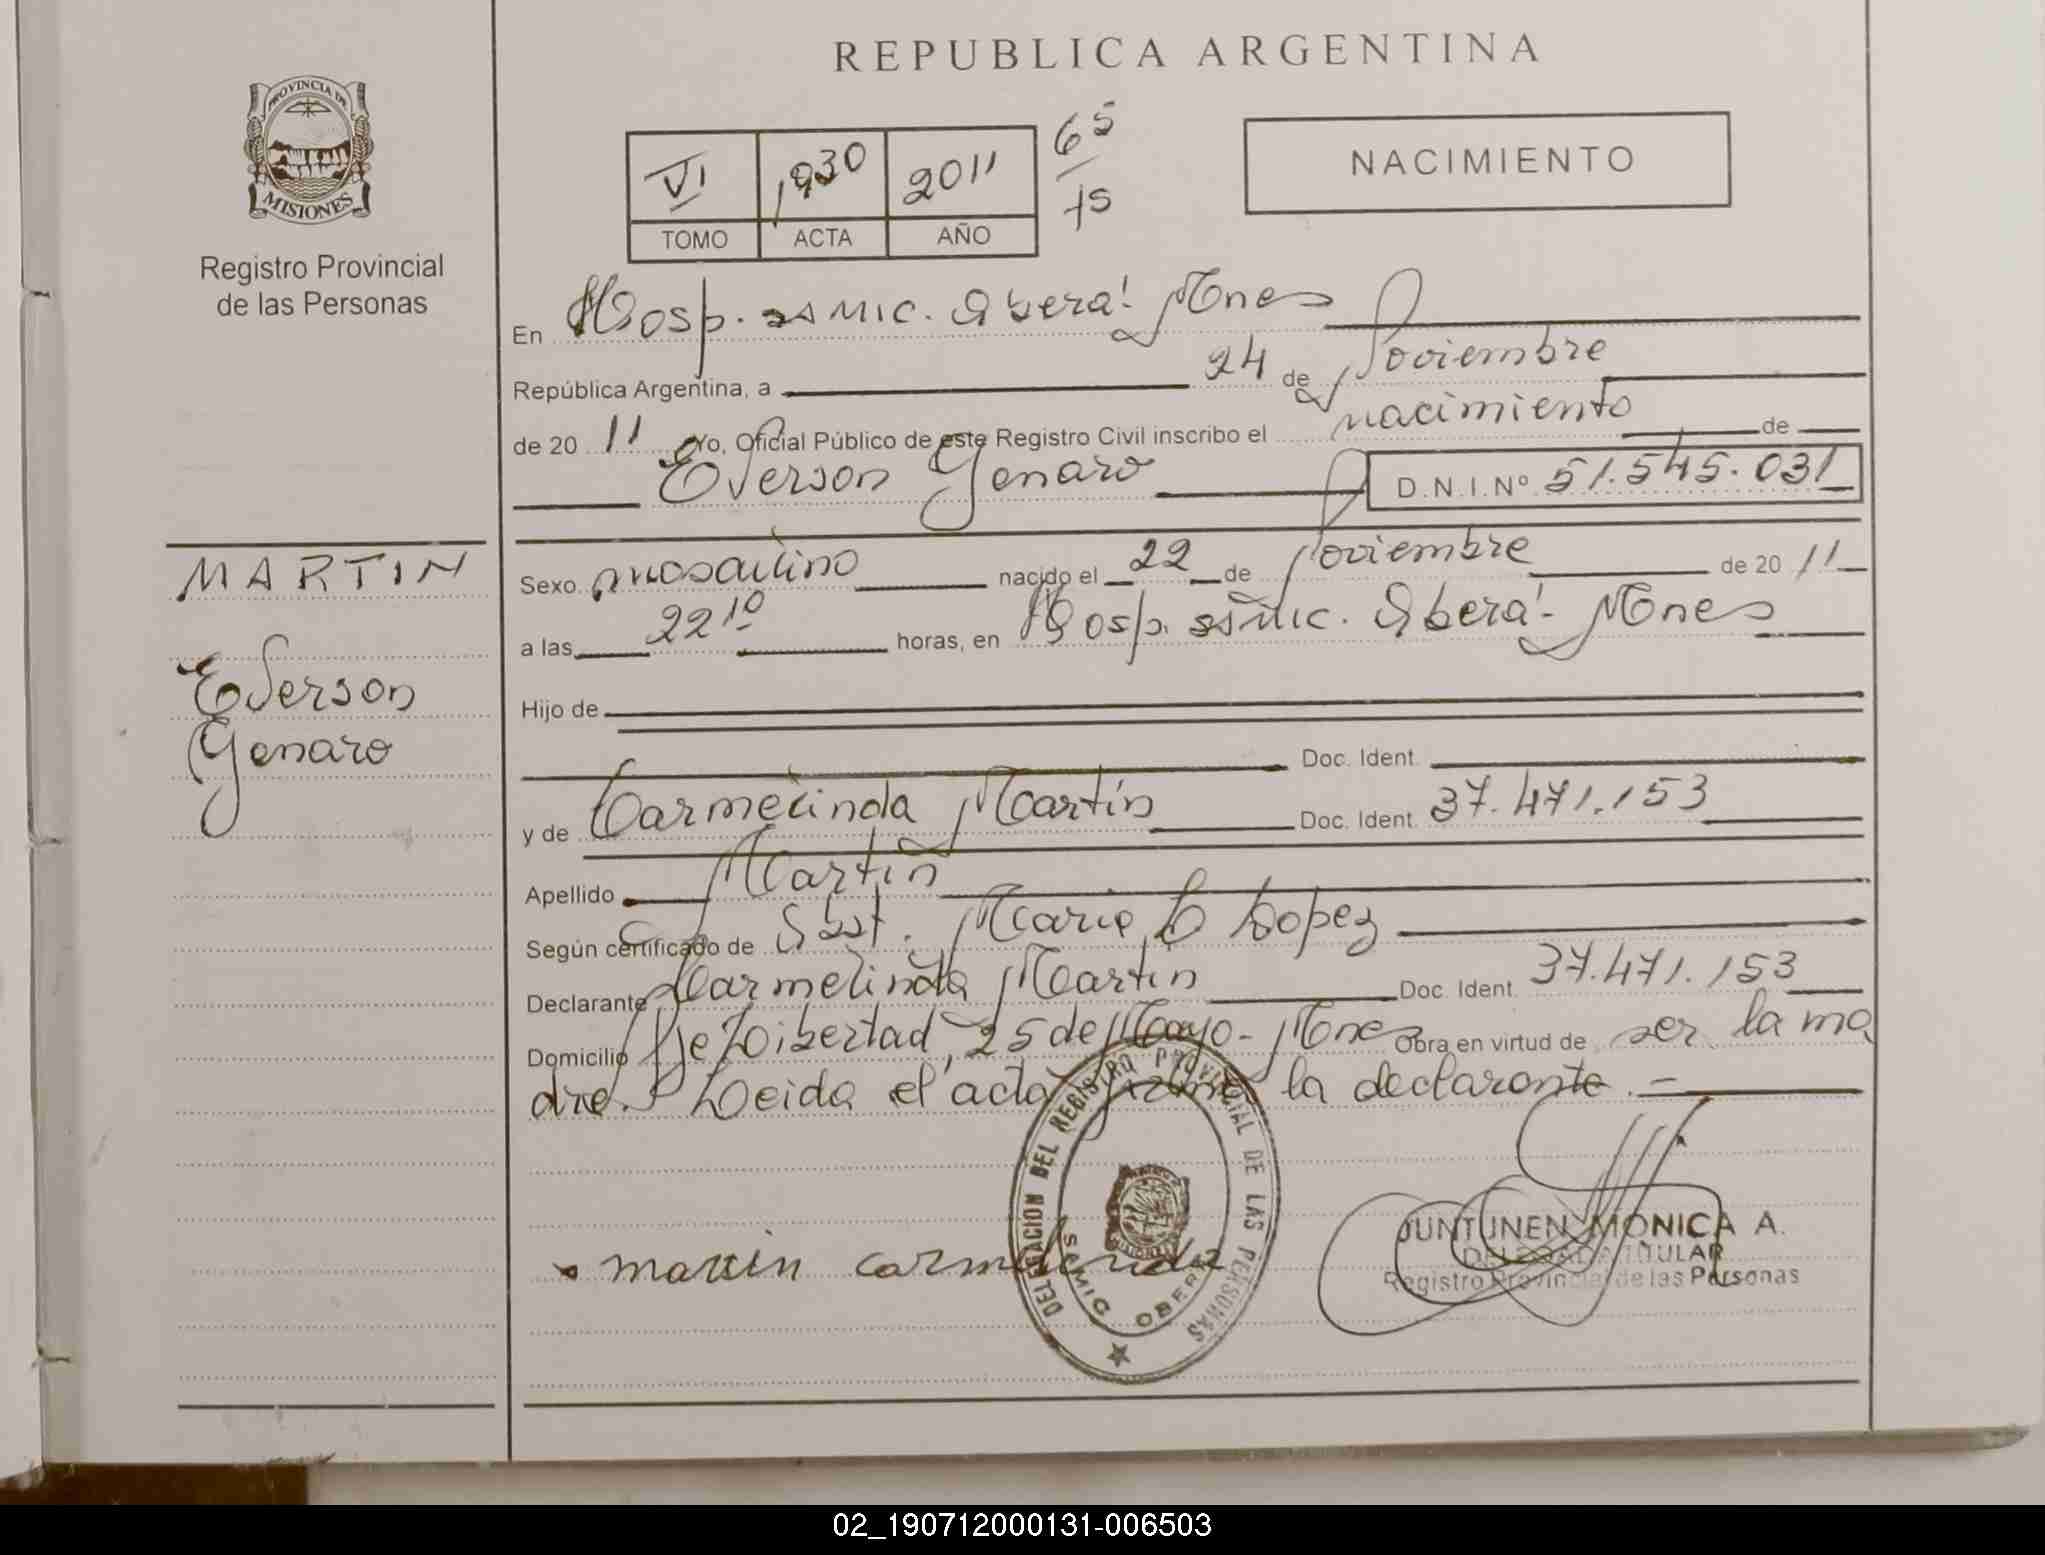 REPUBLICA ARGENTINA
PROVINCIA DE
MISIONES
Registro Provincial
de las Personas
VI 1930 2011
TOMO ACTA AÑO
65
15
NACIMIENTO
En Hosp. SAMIC. Oberá! Mnes
República Argentina, a 24 de Noviembre
de 20 11 Yo, Oficial Público de este Registro Civil inscribo el nacimiento de
Everson Genaro D.N.I.Nº 51.545.031
MARTIN
Everson
Genaro
Sexo masculino nacido el 22 de Noviembre de 20 11
a las 22 10 horas, en Hosp. SAMIC. Oberá!- Mnes
Hijo de
Doc. Ident.
y de Carmelinda Martin Doc. Ident. 37.471.153
Apellido Martin
Según certificado de Obst. Maria C Lopez
Declarante Carmelinda Martin Doc. Ident. 37.471.153
Domicilio Libertad, 25 de Mayo- Mnes Obra en virtud de ser la ma
dre. Leida el acta firma la declarante.-
martin carmelinda
DELEGACION DEL REGISTRO PROVINCIAL DE LAS PERSONAS
SAMIC OBERA
JUNTUNEN MONICA A.
DELEGADA TITULAR
Registro Provincial de las Personas
02_190712000131-006503